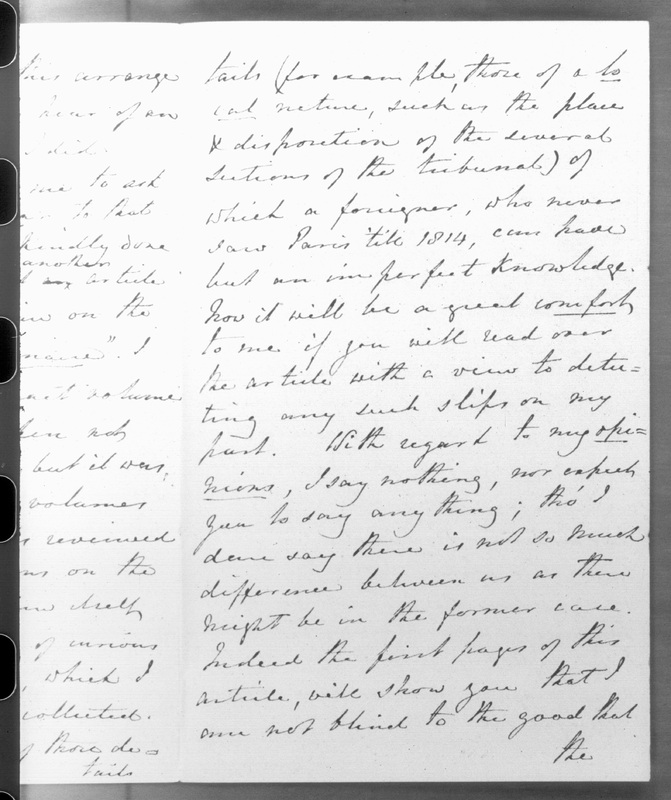 this arrange
hear of an
I did.
me to ask
to that
kindly done
another
article
on the
I
volume
not
but it was,
volumes
reviewed
on the
itself
of curious
, which I
collected.
of those de=
tails
tails (for example, those of a lo
cal nature, such as the place
& disposition of the several
sections of the tribunal) of
which a foreigner, who never
saw Paris 'till 1814, can have
but an imperfect knowledge.
Now it will be a great comfort
to me if you will read over
the article with a view to detec=
ting any such slips on my
part. With regard to my opi=
nions, I say nothing, nor expect
you to say anything; tho' I
dare say there is not so much
difference between us as there
might be in the former case.
Indeed the first pages of this
article, will show you that I
am not blind to the good that
the